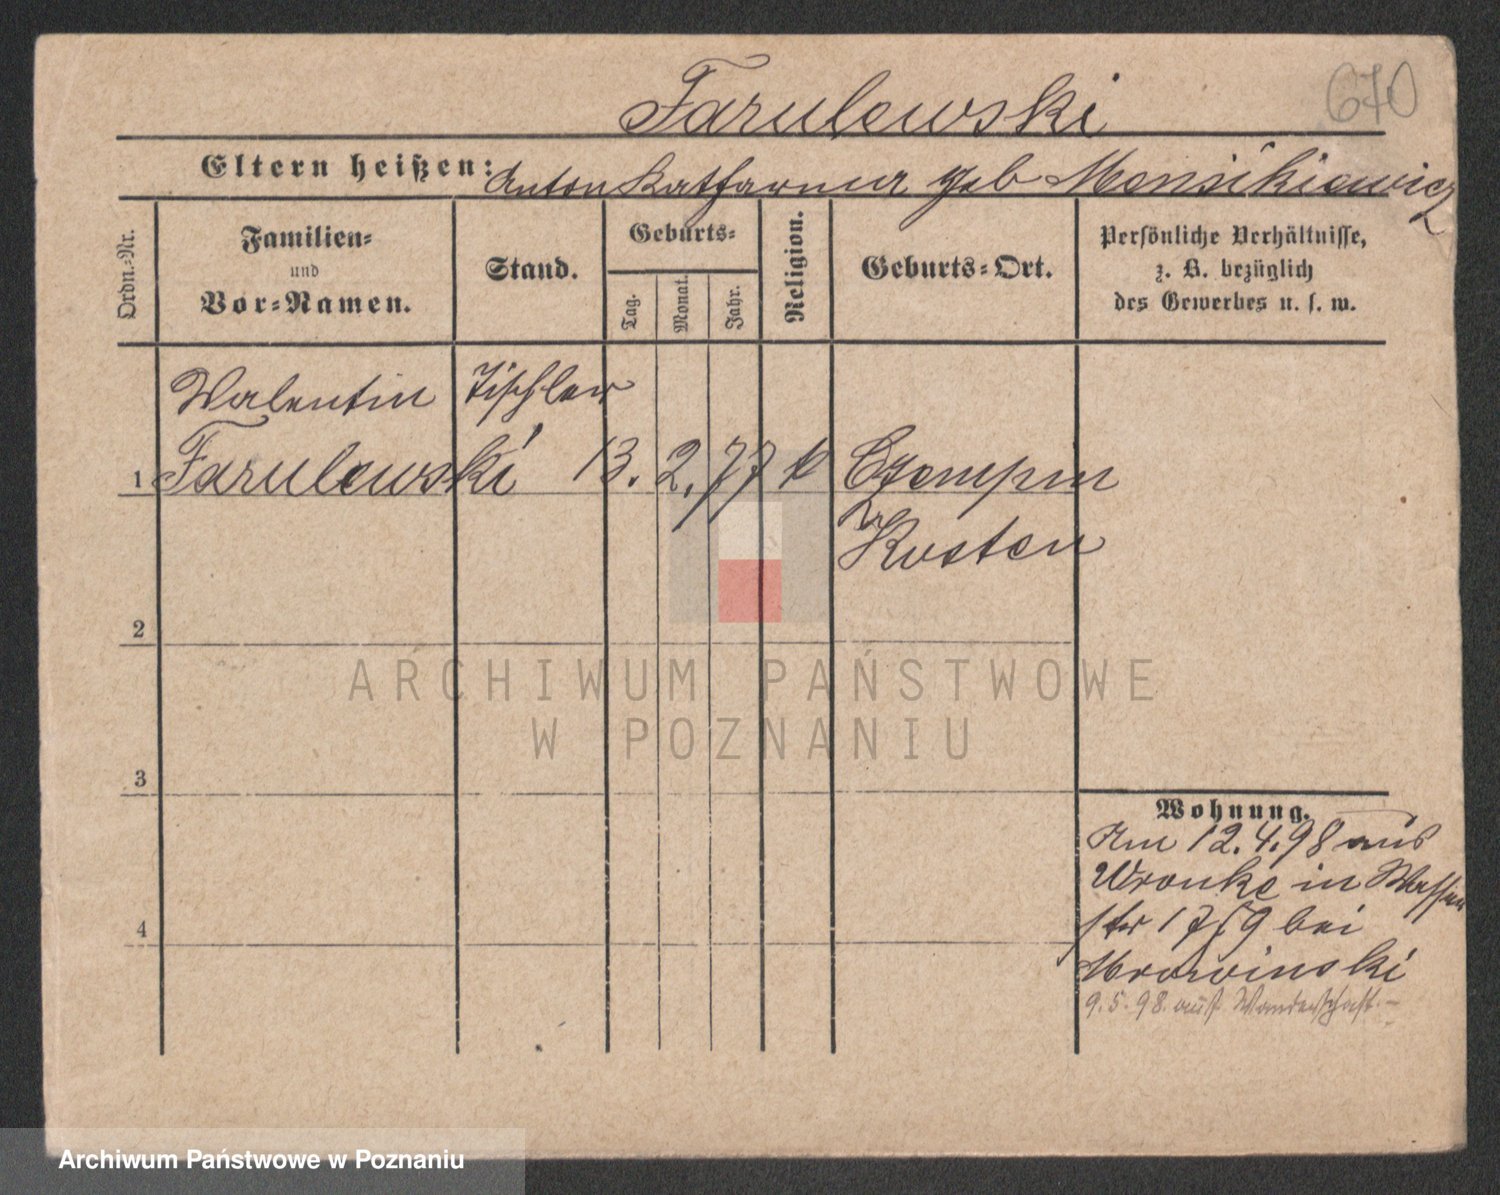 Farulewski
670
Eltern heißen: Anton Katharina geb Mensikiewicz
Ordn.-Nr.
Familien-
und
Vor-Namen.
Stand.
Geburts-
Tag.
Monat.
Jahr.
Religion.
Geburts-Ort.
Persönliche Verhältnisse,
z. B. bezüglich
des Gewerbes u. s. w.
Walentin Tischler
1 Farulewski 13. 2. 77 k Czempin
Kosten
2
ARCHIWUM PAŃSTWOWE
W POZNANIU
3
Wohnung.
Am 12.4.98 aus
Wronke in Wasser
str 17/9 bei
4
Mrowinski
9.5.98. auf Wanderschaft.-
Archiwum Państwowe w Poznaniu